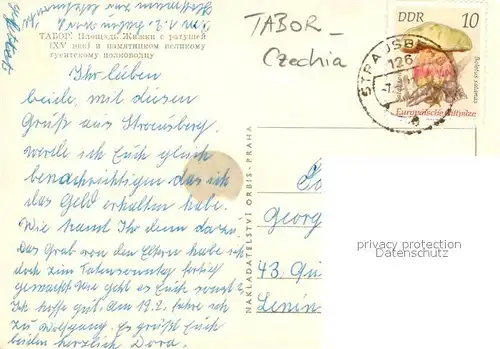 TABOR -
Czechia
DDR 10
Boletus satanas
Europäische Giftpilze
STRAUSBERG
126
ТАБОР: Площадь Жижки с ратушей
(XV век) и памятником великому
гуситскому полководцу
Ihr lieben
beide, mit diesen
Gruß aus Strausberg
werde ich Euch gleich
benachrichtigen das ich
das Geld erhalten habe.
Wie kamt Ihr denn dazu.
Das Grab von den Eltern habe ich
doch zum Totensonntag fertig
gemacht. Wie geht es Euch sonst?
Ich hoffe gut, am 19.2. fahre ich
zu Wolfgang. Es grüßt Euch
beiden herzlich Dora.
NAKLADATELSTVÍ ORBIS - PRAHA
Georg
43.
Lenin
privacy protection
Datenschutz